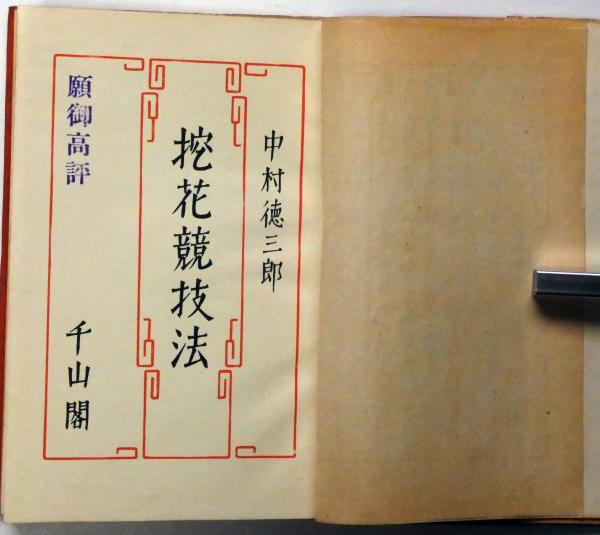 中村徳三郎
挖花競技法
千山閣
願御高評